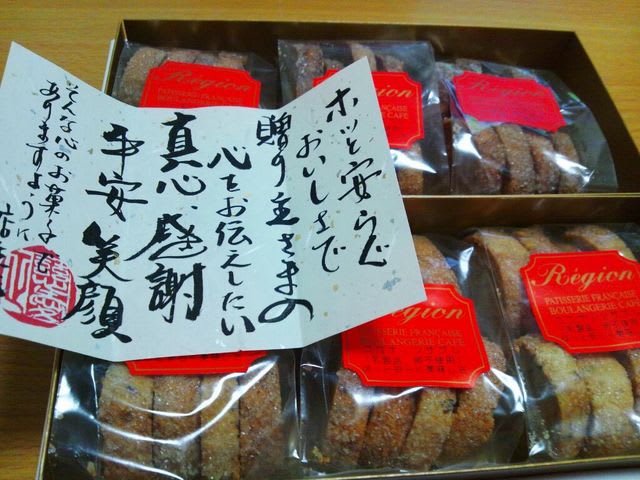 ホッと安らぐ
おいしさで
贈り主さまの
心をお伝えしたい
真心、感謝
平安、笑顔
そんな心のお菓子で
ありますように
Région
PATISSERIE FRANÇAISE
BOULANGERIE CAFE
Région
PATISSERIE FRANÇAISE
BOULANGERIE CAFE
乳製品 卵子使用
Région
PATISSERIE FRANÇAISE
BOULANGERIE CAFE